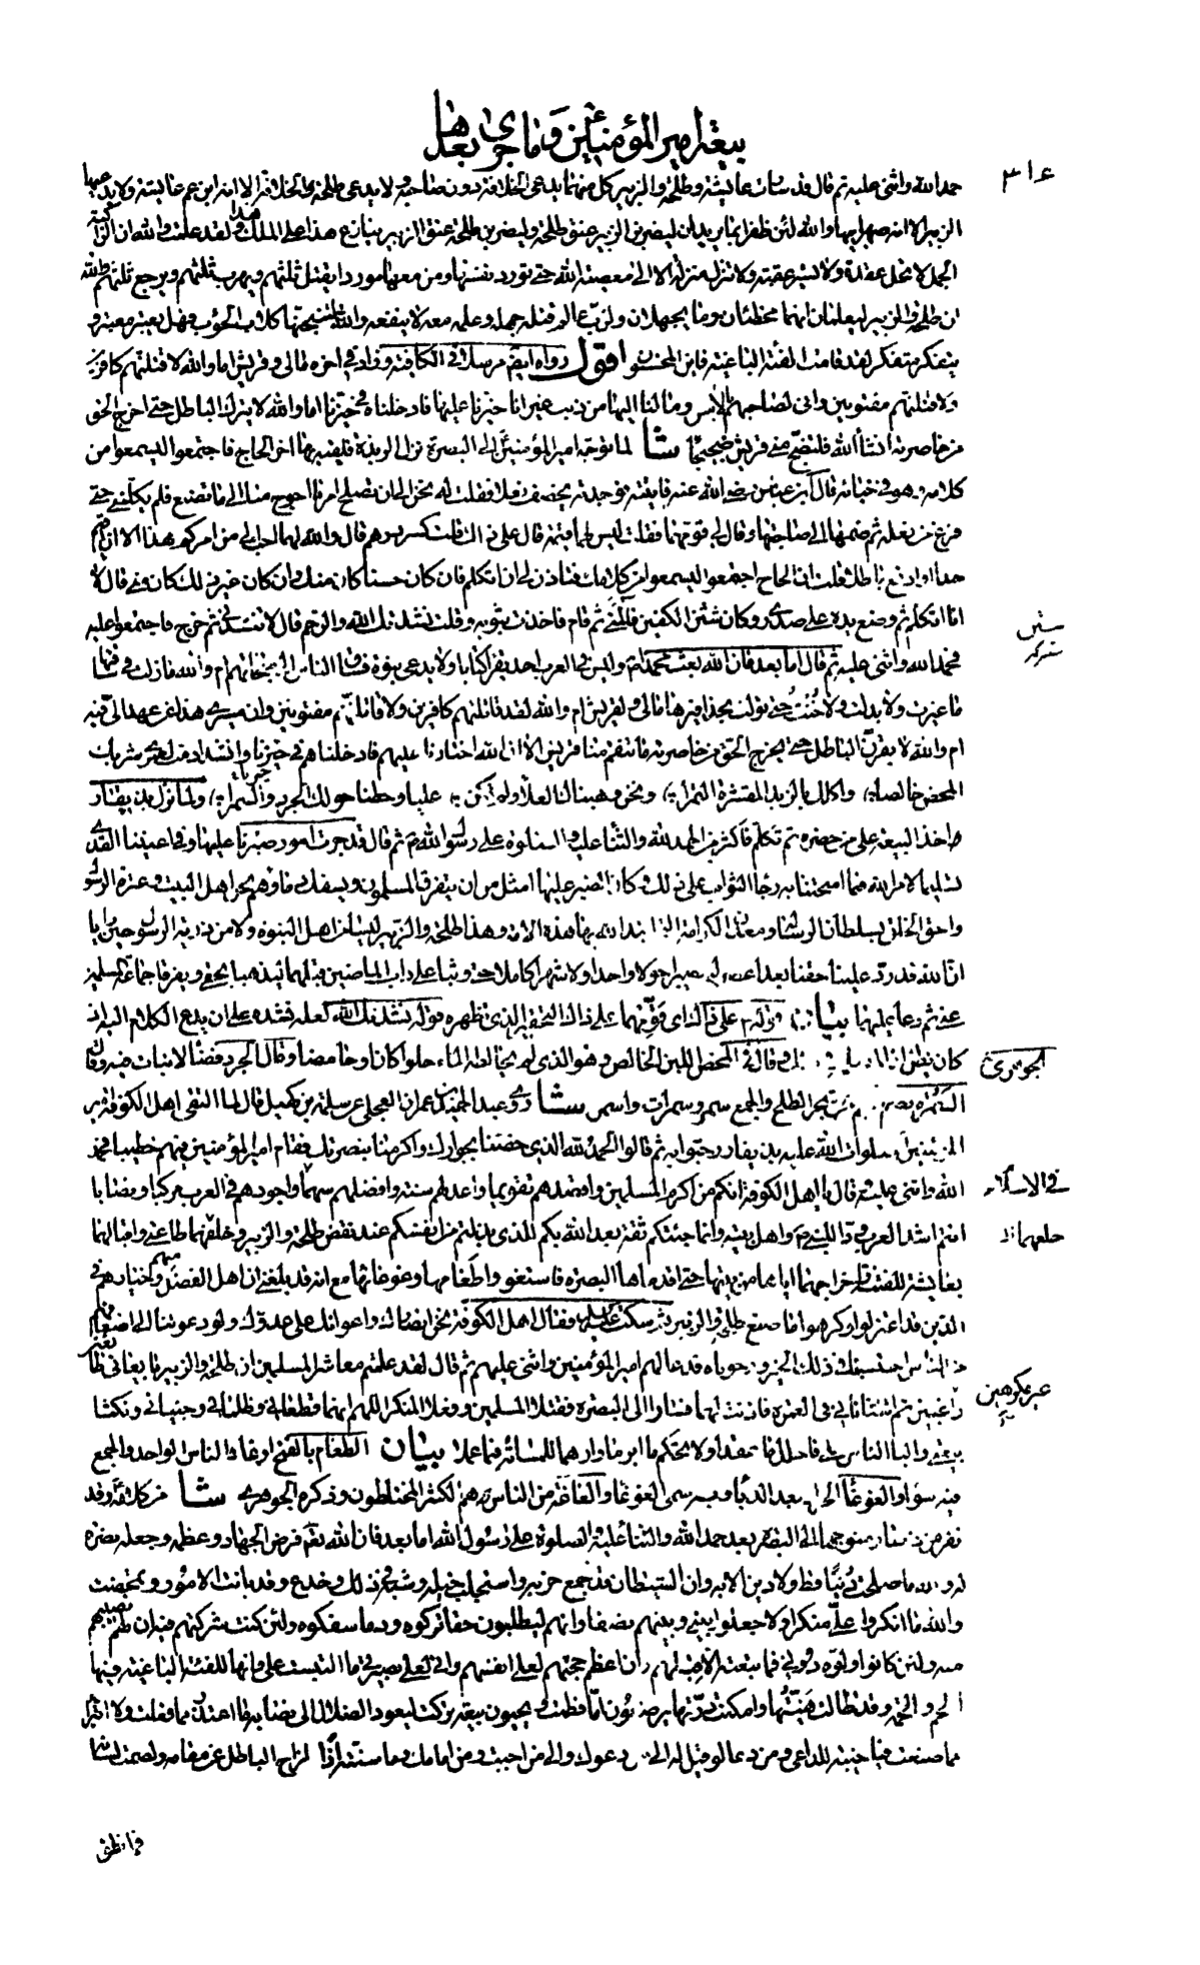 بيعة أمير المؤمنين ع وما جرى بعدها
حمد الله واثنى عليه ثم قال قد سارت عايشة وطلحة والزبير كل منهما يدعى الخلافة دون صاحبه ولا يدعى طلحة الخلافة الا انه ابن عم عايشة ولا يدعيها
الزبير الا انه صهر ابيها والله لئن ظفرا بما يريدان ليضربن الزبير عنق طلحة وليضربن طلحة عنق الزبير ينازع هذا على الملك هذا ولقد علمت والله ان الراكبة
الجمل لا تحل عقدة ولا تسير عقبة ولا تنزل منزلة الا الى معصية الله حتى تورد نفسها ومن معها موردا يقتل ثلثهم ويهرب ثلثهم ويرجع ثلثهم والله
ان طلحة والزبير ليعلمان انهما مخطئان وما يجهلان ولرب عالم قتله جهله وعلمه معه لا ينفعه والله لتنبحنها كلاب الحوئب فهل يعتبر معتبر و
يتفكر متفكر لقد قامت الفئة الباغية فاين المحسنون اقول رواه ايضا مرسلا في الكافية وزاد في اخره مالى وقريش اما والله لاقتلنهم كافرين
ولاقتلنهم مفتونين وانى لصاحبهم بالامس وما لنا اليها من ذنب غير انا خيرنا عليها فادخلناهم في خيرنا اما والله لا يترك الباطل حتى اخرج الحق
من خاصرته انشاء الله فلتضج منى قريش ضجيجا شا لما توجه امير المؤمنين ع الى البصرة نزل الربذة فلقيه بها اخر الحاج فاجتمعوا ليسمعوا من
كلامه وهو في خبائه قال ابن عباس رضى الله عنه فاتيته فوجدته يخصف نعلا فقلت له نحن الى ان تصلح امرنا احوج منا الى ما تصنع فلم يكلمني حتى
فرغ من نعله ثم ضمها الى صاحبتها وقال لى قومهما فقلت ليس لهما قيمة قال على ذاك قلت كسر درهم قال والله لهما احب الى من امركم هذا الا ان اقيم
حقا او ادفع باطلا قلت ان الحاج اجتمعوا ليسمعوا من كلامك فتاذن لى ان اتكلم فان كان حسنا كان منك وان كان غير ذلك كان منى قال لا
انا اتكلم ثم وضع يده على صدرى وكان شثن الكفين فالمنى ثم قام فاخذت بثوبه وقلت نشدتك الله والرحم قال لا تنشدنى ثم خرج فاجتمعوا عليه
فحمد الله واثنى عليه ثم قال اما بعد فان الله بعث محمدا وليس في العرب احد يقرا كتابا ولا يدعى نبوة فساق الناس الى منجاتهم ام والله ما زلت في ساقتها
ما غيرت ولا بدلت ولا خنت حتى تولت بحذافيرها مالى ولقريش ام والله لقد قاتلتهم كافرين ولاقاتلنهم مفتونين وان مسيرى هذا عن عهد الى فيه
ام والله لابقرن الباطل حتى يخرج الحق من خاصرته ما تنقم منا قريش الا ان الله اختارنا عليهم فادخلناهم في خيرنا وانشد
المحض خالصا واكلك بالزبد المقشرة التمرا ونحن وهبناك العلاء ولم تكن عليا وحطنا حولك الجرد والسمرا ولما نزل بذى قار
اخذ البيعة على من حضره ثم تكلم فاكثر من الحمد لله والثناء عليه والصلوة على رسول الله ثم قال قد جرت امور صبرنا عليها وفي اعيننا القذى
تسليما لامر الله فيما امتحننا به رجاء الثواب على ذلك وكان الصبر عليها امثل من ان يتفرق المسلمون ويسفك دماؤهم نحن اهل البيت وعترة الرسول
واحق الخلق بسلطان الرسالة ومعدن الكرامة التى ابتدا الله بها هذه الامة وهذا طلحة والزبير ليسا من اهل النبوة ولا من ذرية الرسول حين رايا
ان الله قد رد علينا حقنا بعد اعصر لم يصبرا حولا واحدا ولا شهرا كاملا حتى وثبا على داب الماضين قبلهما ليذهبا بحقى ويفرقا جماعة المسلمين
عنى ثم دعا عليهما بيان قوله على ذاك اى قومهما على ذاك قوله نشدتك الله
كان في المحض اللبن الخالص وهو الذى لم يخالطه الماء حلوا كان او حامضا وقال الجرد فضاء لا نبات فيه وقال
السمرة بضم الميم من شجر الطلح والجمع سمر وسمرات واسمر شا روى عبد الحميد بن عمران العجلى عن سلمة بن كهيل قال لما التقى اهل الكوفة امير
المؤمنين صلوات الله عليه بذى قار رحبوا به ثم قالوا الحمد لله الذى خصنا بجوارك واكرمنا بنصرتك فقام امير المؤمنين فيهم خطيبا فحمد
الله واثنى عليه وقال يا اهل الكوفة انكم من اكرم المسلمين واقصدهم تقويما واعدلهم سنة وافضلهم سهما واجودهم في العرب مركبا ونصابا
انتم اشد العرب ودا للنبى واهل بيته وانما جئتكم ثقة بعد الله بكم للذى بذلتم من انفسكم عند نقض طلحة والزبير وخلعهما طاعتى واقبالهما
بعايشة للفتنة واخراجهما اياها من بيتها حتى اقدماها البصرة فاستغووا طغامها وغوغاءها مع انه قد بلغنى ان اهل الفضل منهم وخيارهم في
الدين قد اعتزلوا وكرهوا ما صنع طلحة والزبير ثم سكت ع فقال اهل الكوفة نحن انصارك واعوانك على عدوك ولو دعوتنا الى اضعافهم
من الناس احتسبنا في ذلك الخير ورجوناه فدعا لهم امير المؤمنين واثنى عليهم ثم قال لقد علمتم معاشر المسلمين ان طلحة والزبير بايعانى طائعين
راغبين ثم استاذنانى في العمرة فاذنت لهما فسارا الى البصرة فقتلا المسلمين وفعلا المنكر اللهم انهما قطعانى وظلمانى وجنيانى ونكثا
بيعتى والبا الناس على فاحلل ما عقدا ولا تحكم ما ابرما وارهما المساءة فيما عملا بيان الطغام بالفتح اوغاد الناس الواحد والجمع
فيه سواء والغوغاء الجراد بعد الدبا وبه سمى الغوغاء والغاغة من الناس وهم الكثير المختلطون وذكره الجوهرى شا من كلامه وقد
نفر من ذى قار متوجها الى البصرة بعد حمد الله والثناء عليه والصلوة على رسول الله اما بعد فان الله تعالى فرض الجهاد وعظمه وجعله نصرة
له والله ما صلحت دنيا قط ولا دين الا به وان الشيطان قد جمع حزبه واستجلب خيله وشبه في ذلك وخدع وقد بانت الامور وتمحصت
والله ما انكروا على منكرا ولا جعلوا بينى وبينهم نصفا وانهم ليطلبون حقا تركوه ودما سفكوه ولئن كنت شركتهم فيه ان لهم لنصيبهم
منه ولئن كانوا ولوه دونى فما تبعته الا قبلهم وان اعظم حجتهم لعلى انفسهم وانى لعلى بصيرتى ما التبست على وانها للفئة الباغية فيها
الحم والحمة وقد طالت هينتها وامكنت درتها يرضعون اما فطمت يحيون بيعة تركت ليعود الضلال الى نصابه ما اعتذر مما فعلت ولا اتبرا
مما صنعت فيا خيبة للداعى ومن دعا لو قيل له الى من دعوتك والى من اجبت ومن امامك وما سنته اذا لزاح الباطل عن مقامه ولصمت لسانه
فما نطق
٤١٣
الجوهرى
في الاسلام
خلعهما